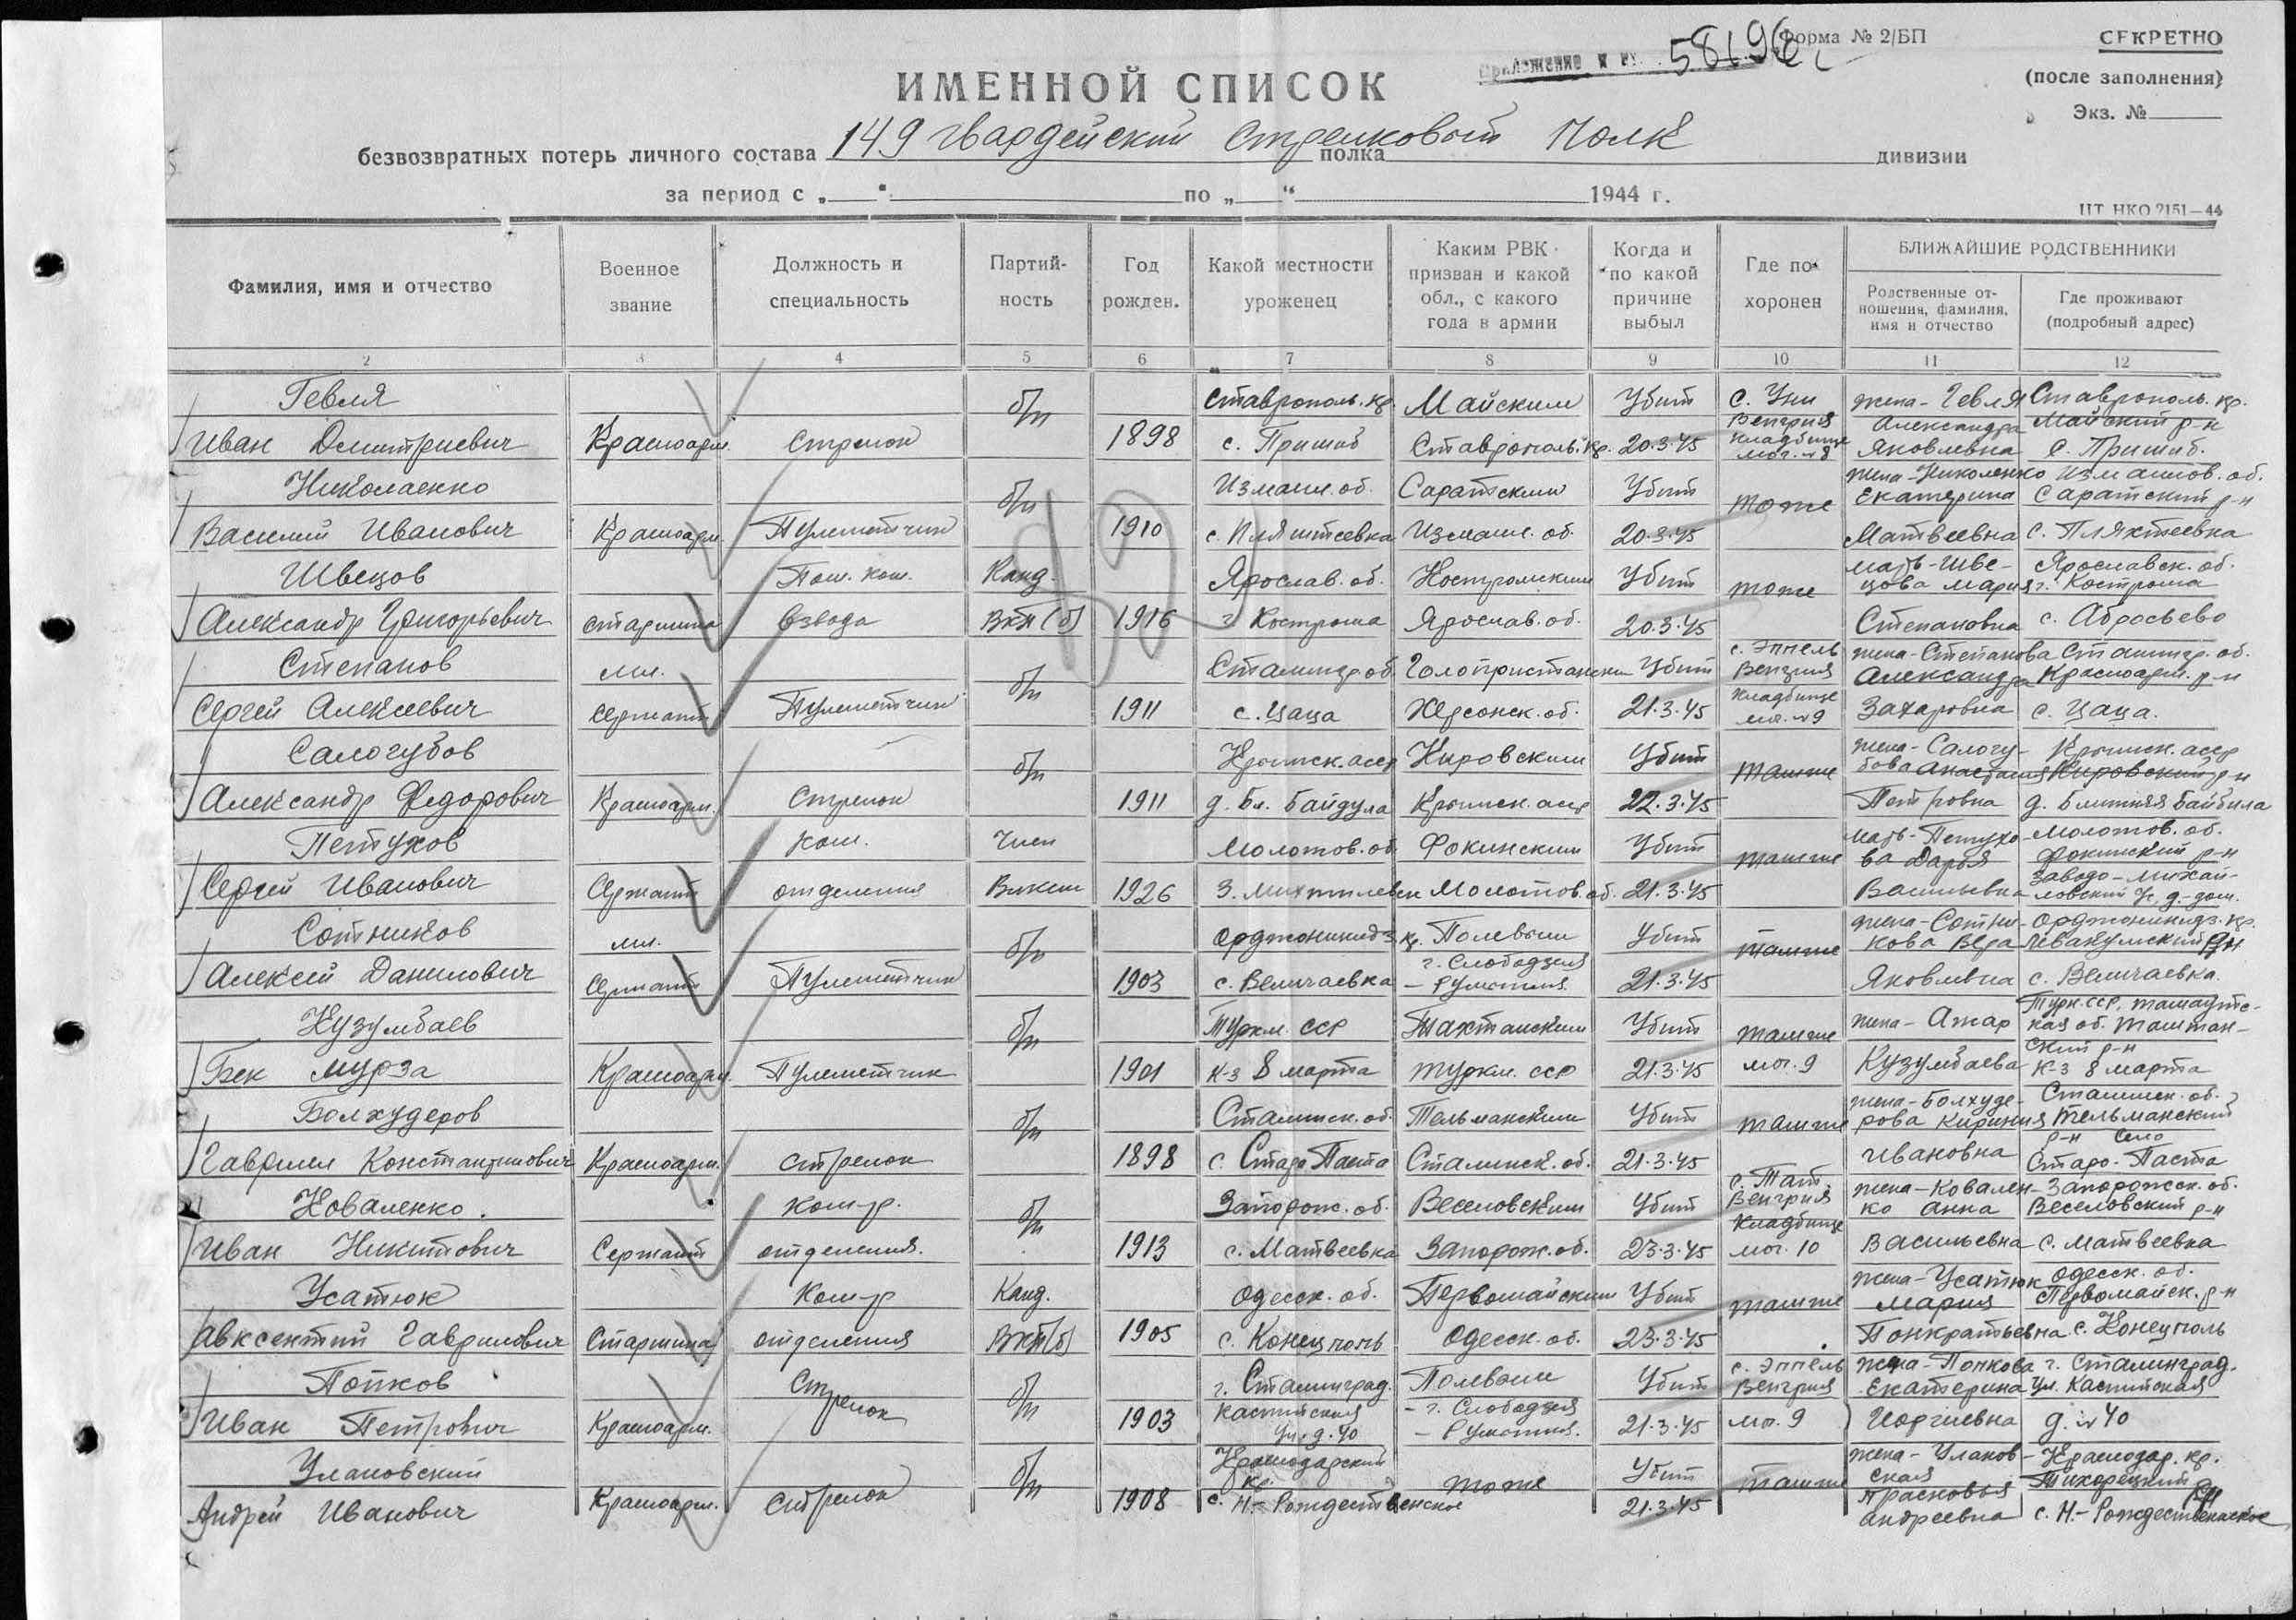 Форма № 2/БП
СЕКРЕТНО
Приложение к вх. 58196с
(после заполнения)
ИМЕННОЙ СПИСОК
Экз. №
безвозвратных потерь личного состава 149 гвардейский стрелковый полк полка дивизии
за период с „ “ по „ “ 1944 г.
ЦТ НКО 2151—44
Фамилия, имя и отчество
Военное звание
Должность и специальность
Партийность
Год рожден.
Какой местности уроженец
Каким РВК призван и какой обл., с какого года в армии
Когда и по какой причине выбыл
Где похоронен
БЛИЖАЙШИЕ РОДСТВЕННИКИ
Родственные отношения, фамилия, имя и отчество
Где проживают (подробный адрес)
2 3 4 5 6 7 8 9 10 11 12
Гевля б/п Ставрополь. кр. Майским Убит с. Уни Венгрия жена - Гевля Александра Ставрополь. кр. Майский р-н
Иван Дмитриевич Красноарм. Стрелок 1898 с. Пришиб Ставрополь. кр. 20.3.45 кладбище мог. № 8 Яковлевна с. Пришиб.
Николаенко б/п Измаил. об. Саратским Убит тоже жена - Николенко Екатерина Измаилов. об. Саратский р-н
Василий Иванович Красноарм. Пулеметчик 1910 с. Измаил. об. 20.3.45 Матвеевна с. Пляхтеевка
Швецов Пом. ком. Канд. Ярослав. об. Костромским Убит тоже мать - Швецова Мария Ярославск. об. г. Кострома
Александр Григорьевич старшина взвода ВКП(б) 1916 г. Кострома Ярослав. об. 20.3.45 Степановна с. Абросьево
Степанов мл. б/п Сталингр. об. Голопристански Убит с. Эппель Венгрия жена - Степанова Александра Сталингр. об. Красноарм. р-н
Сергей Алексеевич сержант Пулеметчик 1911 с. Цаца Херсонск. об. 21.3.45 кладбище мог. № 9 Захаровна с. Цаца.
Салогубов б/п Крымск. асср Кировским Убит тамже жена - Салогубова Анастасия Крымск. асср Кировский р-н
Александр Федорович Красноарм. Стрелок 1911 д. Бл. Байдула Крымск. асср 22.3.45 Петровна д. Ближняя Байбула
Петухов ком. Член Молотов. об. Фокинским Убит тамже мать - Петухова Дарья Молотов. об. Фокинский р-н
Сергей Иванович Сержант отделения Влксм 1926 Молотов. об. 21.3.45 Васильевна Заводо-Михайловский д.-дом.
Сотников мл. б/п Орджоникидз. кр. Полевым Убит тамже жена - Сотникова Вера Орджоникидз. кр. Левакумский р-н
Алексей Данилович Сержант Пулеметчик 1903 с. Величаевка г. Слободзея - Румыния. 21.3.45 Яковлевна с. Величаевка.
Кузумбаев б/п Туркм. сср Тахтанским Убит тамже жена - Ажар Турк. сср, ташаузская об. Таштанский р-н
Бек мурза Красноарм. Пулеметчик 1901 к-з 8 марта туркм. сср 21.3.45 мог. 9 Кузумбаева к-з 8 марта
Болхудеров б/п Сталинск. об. Тельманским Убит тамже жена - Болхудерова Кирикия Сталинск. об. Тельманский р-н село
Гавриил Константинович Красноарм. стрелок 1898 с. Старо Ласпа Сталинск. об. 21.3.45 Ивановна Старо-Ласпа
Коваленко. ком-р. б/п Запорож. об. Веселовским Убит с. Тат. Венгрия жена - Коваленко Анна Запорожск. об. Веселовский р-н
Иван Никитович Сержант отделения. 1913 с. Матвеевка Запорож. об. 23.3.45 кладбище мог. 10 Васильевна с. Матвеевка
Усатюк Ком-р Канд. Одесск. об. Первомайским Убит тамже жена - Усатюк Мария Одесск. об. Первомайск. р-н
Авксентий Гаврилович Старшина отделения ВКП(б) 1905 с. Конецполь Одесск. об. 23.3.45 Понкратьевна с. Конецполь
Попков Стрелок б/п г. Сталинград. Полевым Убит с. Эппель Венгрия жена - Попкова Екатерина г. Сталинград. ул. Каспийская
Иван Петрович Красноарм. 1903 Каспийская ул. д. 40 - г. Слободзея - Румыния. 21.3.45 мог. 9 Иоргиевна д. № 40
Улановский б/п Краснодарский кр. тоже Убит тамже жена - Улановская Краснодар. кр. Тихорецкий р-н
Андрей Иванович Красноарм. стрелок 1908 с. Н.-Рождественское 21.3.45 Прасковья Андреевна с. Н.-Рождественское